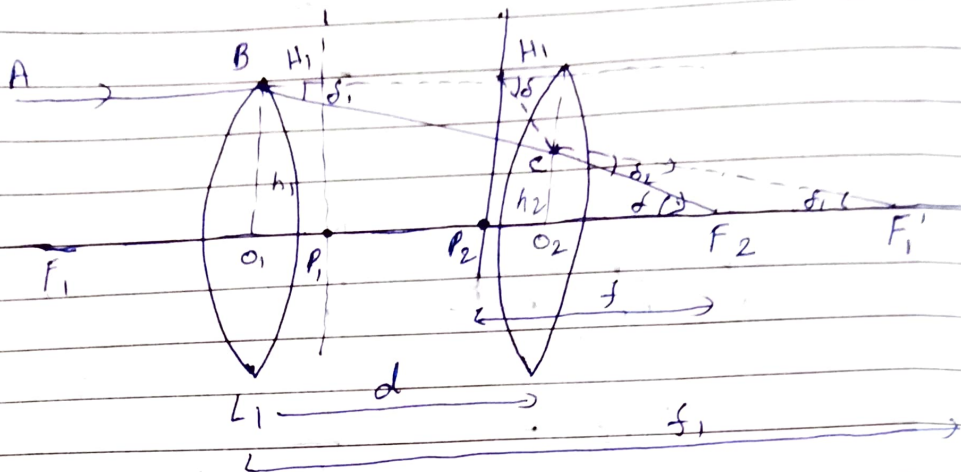 B H₁' H₁
A δ₁ δ
C δ₂
h₁ h₂ δ δ₁
F₁ O₁ P₁ P₂ O₂ F₂ F₁'
f
L₁ d
f₁